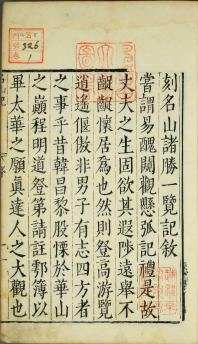 刻名山諸勝一覽記敘
嘗謂易醜闚觀懸弧記禮是故
丈夫之生固欲其遐陟遠舉不
齪齪懷居爲也然則登高游覽
逍遙偃傲非男子有志四方者
之事乎昔韓昌黎股慄於華山
之巔程明道登第請註鄠簿以
畢太華之願眞達人之大觀也
326
1